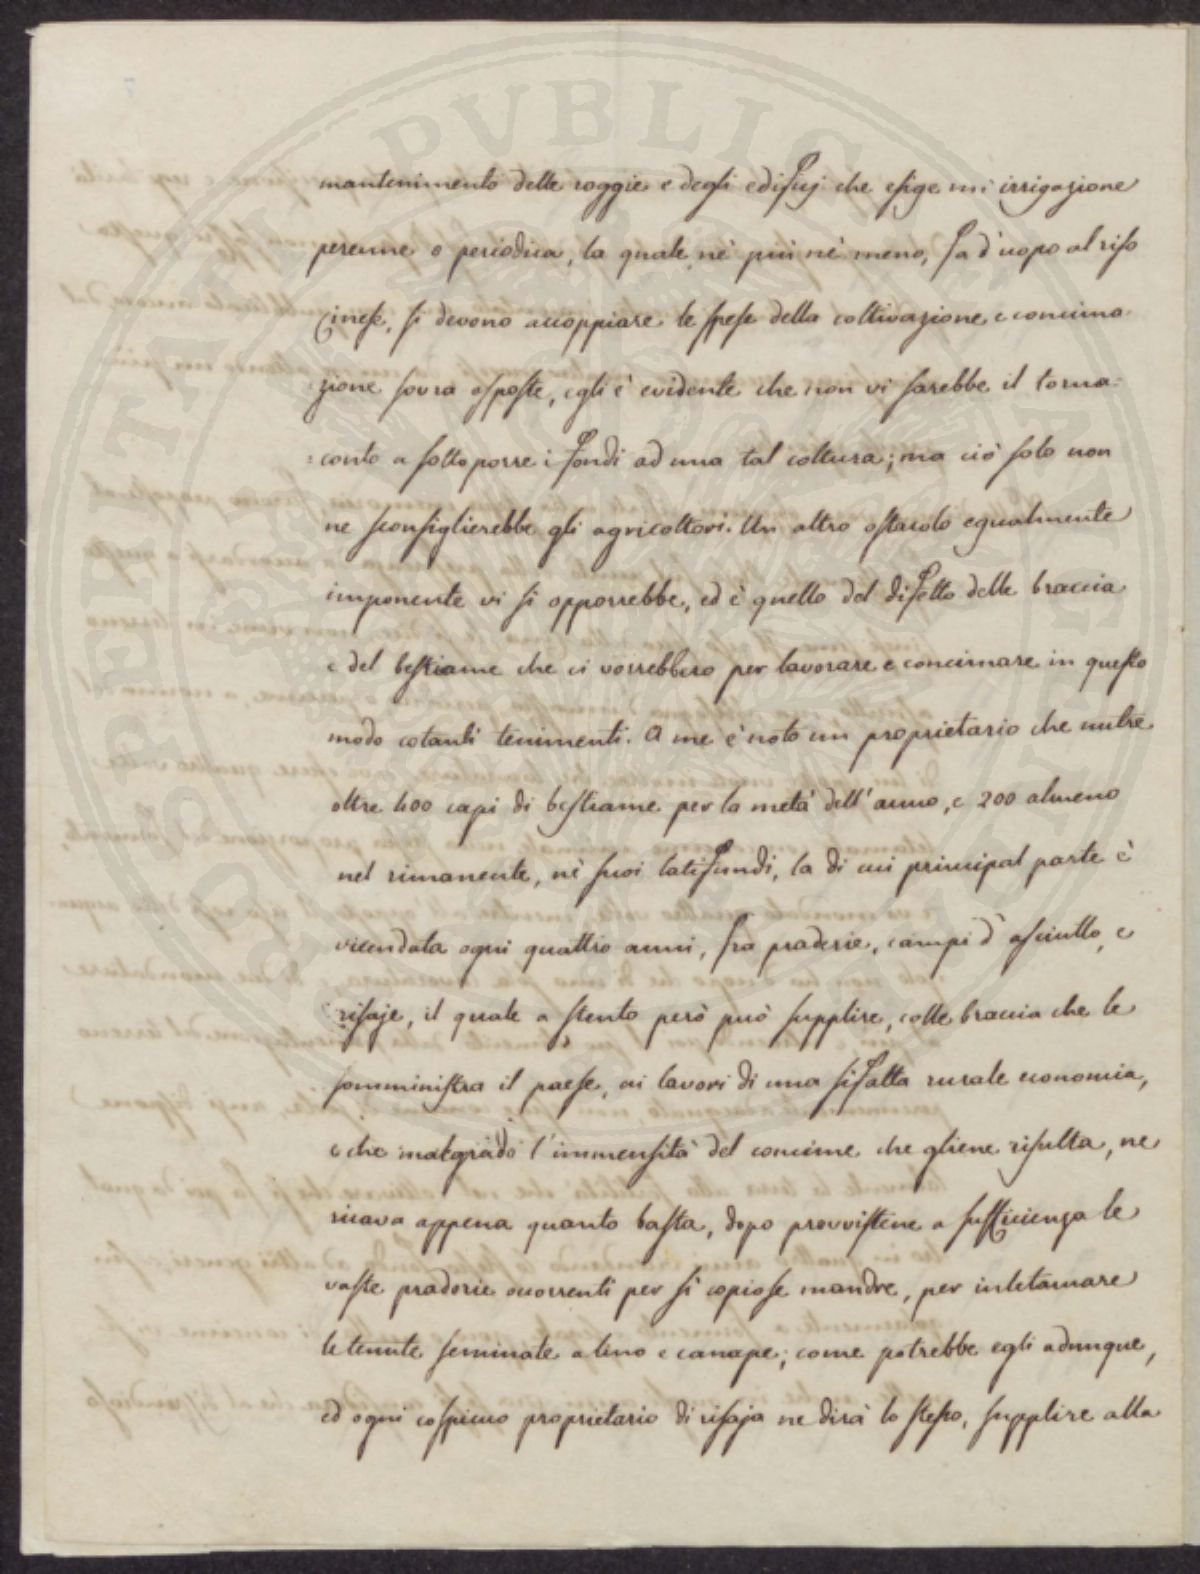 mantenimento delle roggie e degli edifizj che esige un irrigazione
perenne o periodica, la quale nè più nè meno, fa d'uopo al riso
Cinese, si devono accoppiare le spese della coltivazione e concima-
zione sovra esposte, egli è evidente che non vi sarebbe il torna:
:conto a sottoporre i fondi ad una tal coltura; ma ciò solo non
ne sconsiglierebbe gli agricoltori. Un altro ostacolo egualmente
imponente vi si opporrebbe, ed è quello del difetto delle braccia
e del bestiame che ci vorrebbero per lavorare e concimare in questo
modo cotanti tenimenti. A me è noto un proprietario che nutre
oltre 400 capi di bestiame per la metà dell'anno, e 200 almeno
nel rimanente, nè suoi latifundi, la di cui principal parte è
vicendata ogni quattro anni, fra praderie, campi d'asciutto, e
risaje, il quale a stento però può supplire, colle braccia che le
somministra il paese, ai lavori di una sifatta rurale economia,
e che malgrado l'immensità del concime che gliene risulta, ne
ricava appena quanto basta, dopo provvistene a sufficienza le
vaste praderie occorrenti per sì copiose mandre, per inletamare
le tenute seminate a lino e canape; come potrebbe egli adunque,
ed ogni cospicuo proprietario di risaja ne dirà lo stesso, supplire alla
PROSPERITATI PVBLICAE AVGENDAE